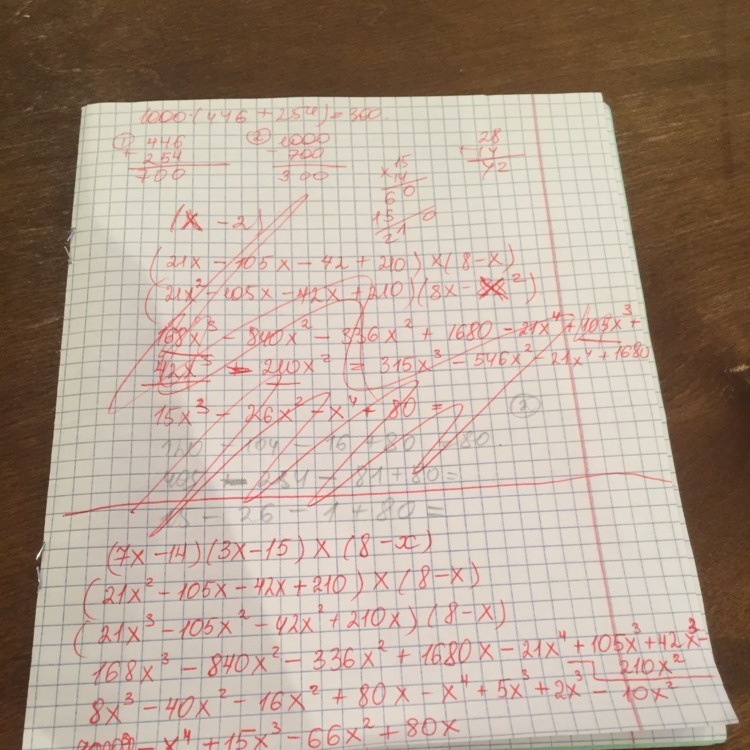 1000-(446+254)=300
① 446 ② 1000
254 - 700
700 300
15
x 14
60
15
210
28
(x-2)
(21x - 105x - 42 + 210) x (8-x)
(21x² - 105x - 42x + 210) (8x -
168x³ - 840x² - 336x² + 1680 - 21x⁴ + 105x³ +
42x³ - 210x² = 315x³ - 546x² - 21x⁴ + 1680
15x³ - 26x² - x⁴ + 80 =
- 104 - 16 + 80 80.
- 81 + 80 =
- 26 - 1 + 80 =
(7x-14)(3x-15) x (8-x)
(21x² - 105x - 42x + 210) x (8-x)
(21x³ - 105x² - 42x² + 210x) (8-x)
168x³ - 840x² - 336x² + 1680x - 21x⁴ + 105x³ + 42x³ -
210x²
8x³ - 40x² - 16x² + 80x - x⁴ + 5x³ + 2x³ - 10x²
- x⁴ + 15x³ - 66x² + 80x